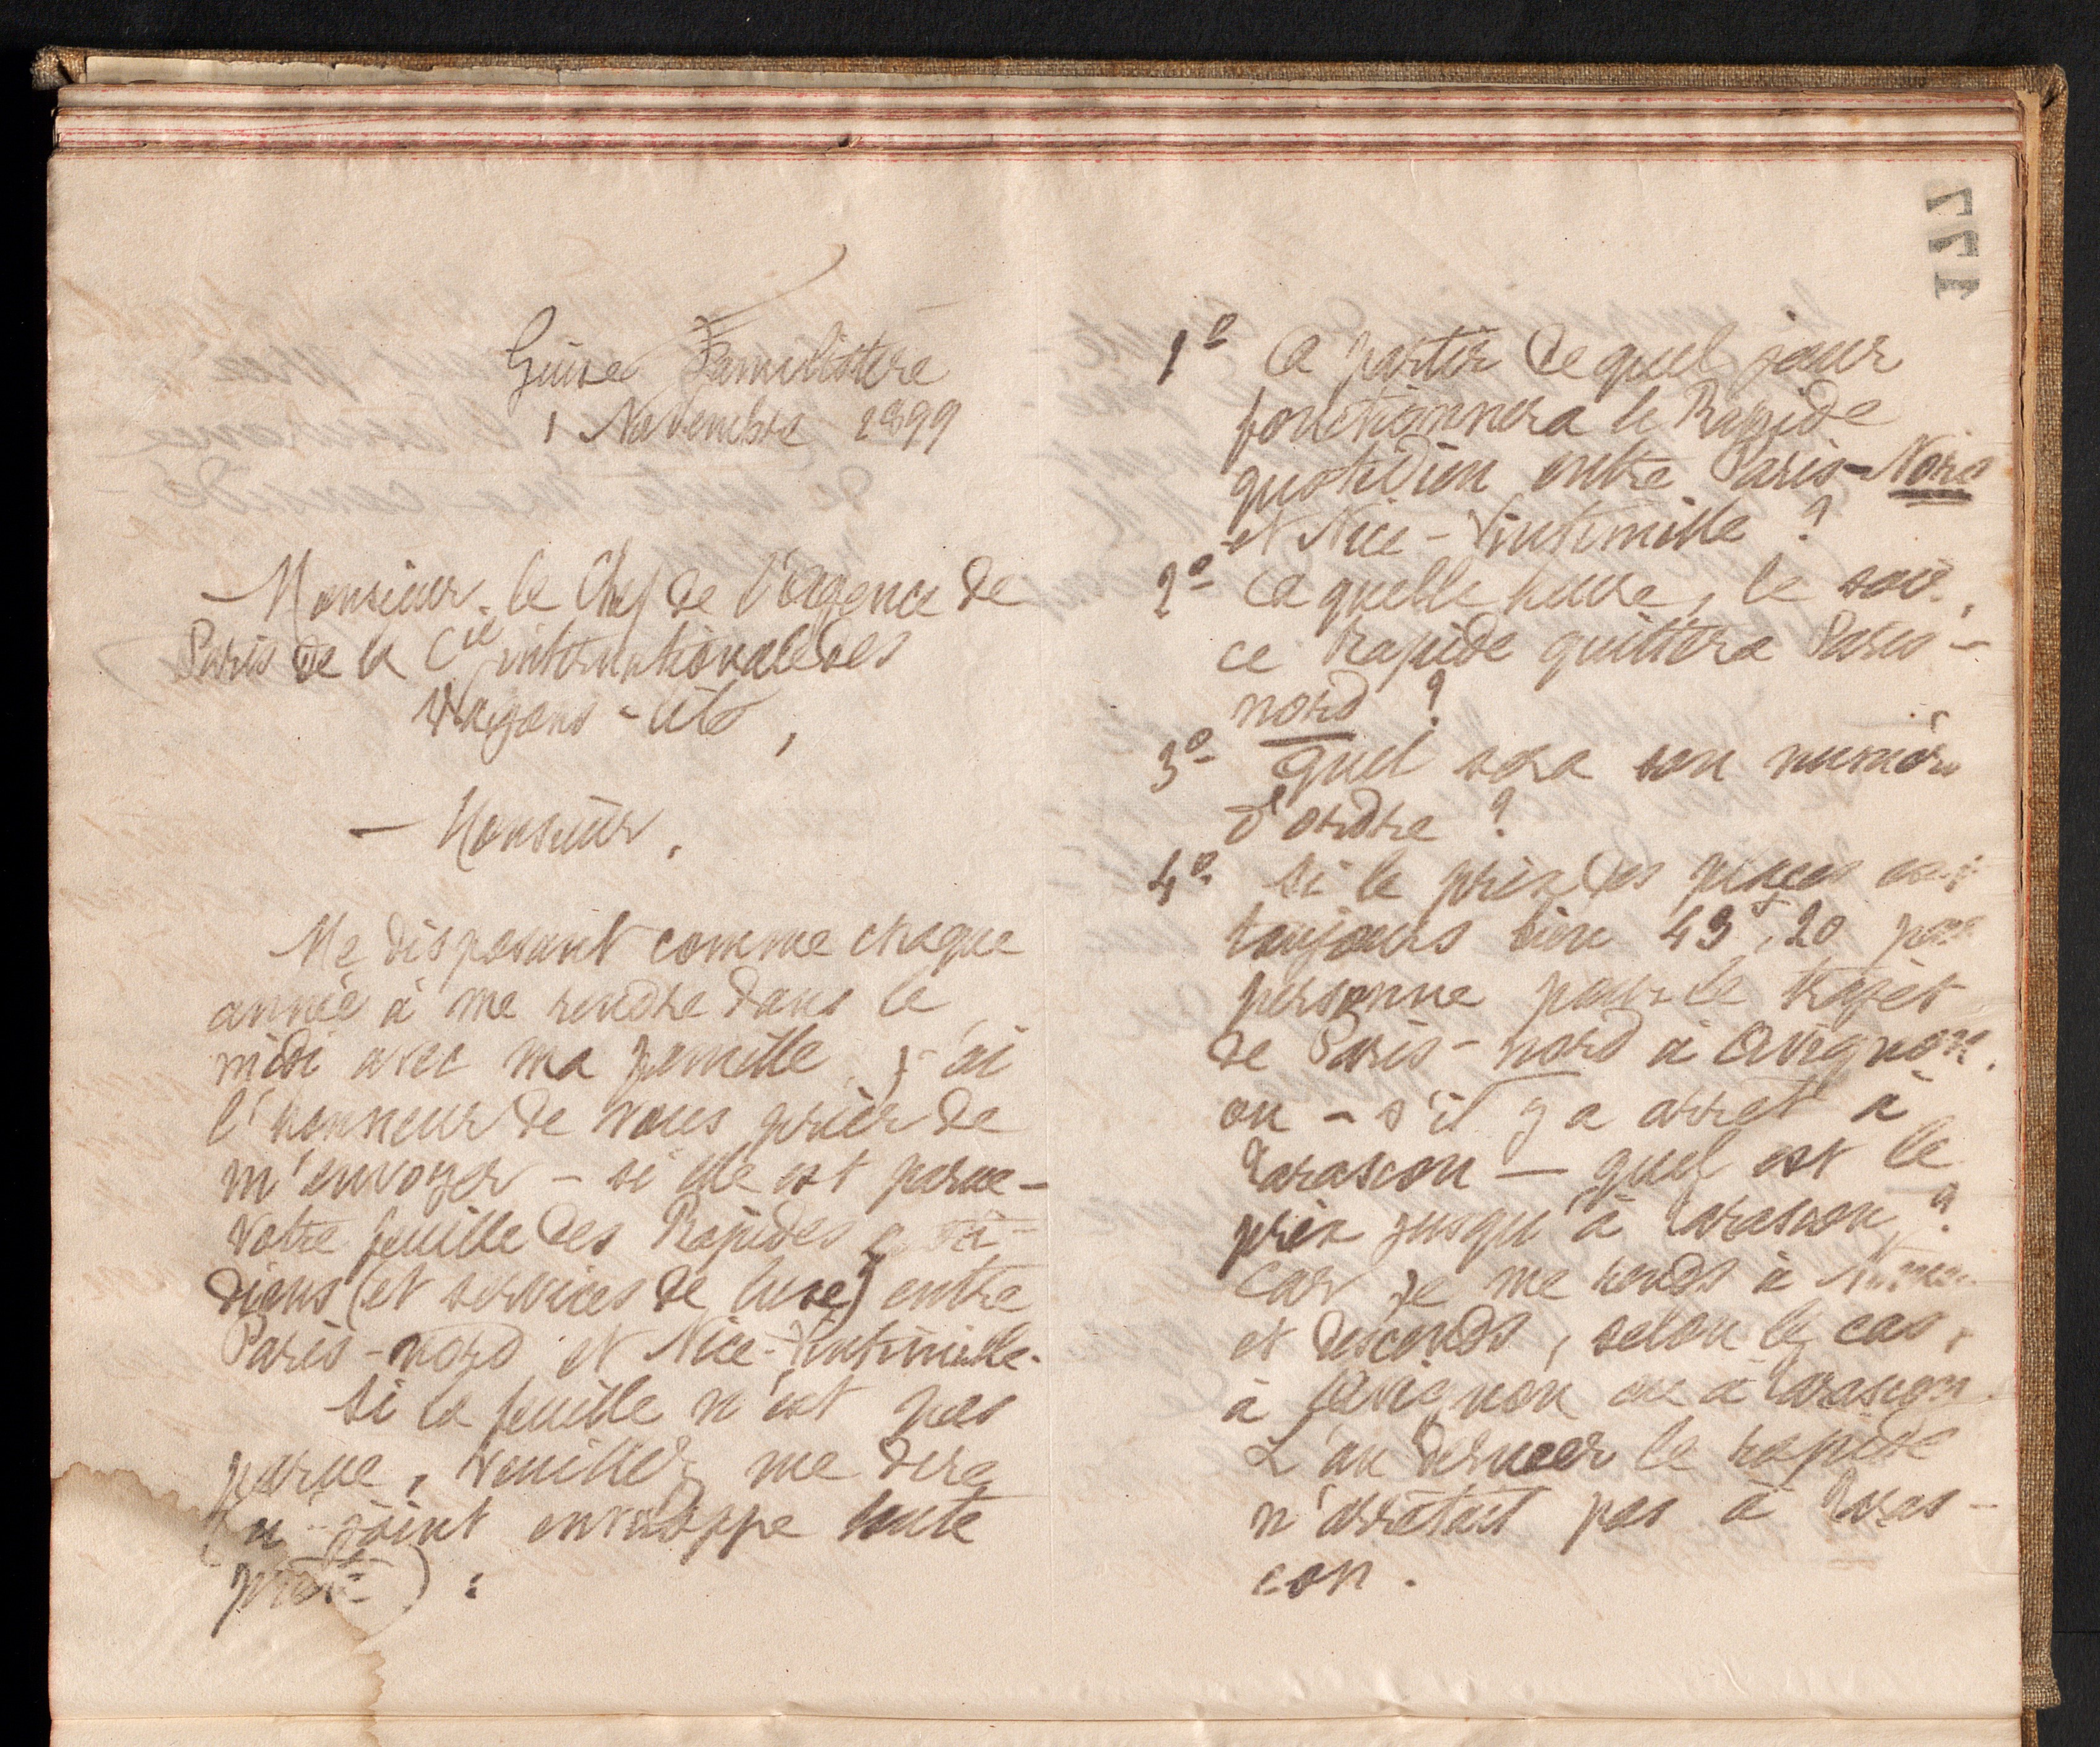 Guise Familistère
1 Novembre 1899
Monsieur le Chef de l'agence de
Paris de la Cie internationale des
Wagons-lits,
Monsieur,
Me disposant comme chaque
année à me rendre dans le
midi avec ma famille, j'ai
l'honneur de vous prier de
m'envoyer - si elle est parue -
votre feuille des Rapides quoti-
diens (et services de luxe) entre
Paris-nord et Nice-Vintimille.
Si la feuille n'est pas
parue, veuillez me dire
(ci-joint enveloppe toute
prête) :
177
1º A partir de quel jour
fonctionnera le Rapide
quotidien entre Paris-Nord
et Nice-Vintimille ?
2º A quelle heure, le soir,
ce rapide quittera Paris-
nord ?
3º Quel sera son numéro
d'ordre ?
4º Si le prix des places est
toujours bien 43f,20 par
personne pour le trajet
de Paris-nord à Avignon.
ou - s'il y a arrêt à
Tarascon - quel est le
prix jusqu'à Tarascon ?
Car je me rends à Nimes
et descends, selon le cas,
à Avignon ou à Tarascon.
L'an dernier le rapide
n'arrêtait pas à Taras-
con.